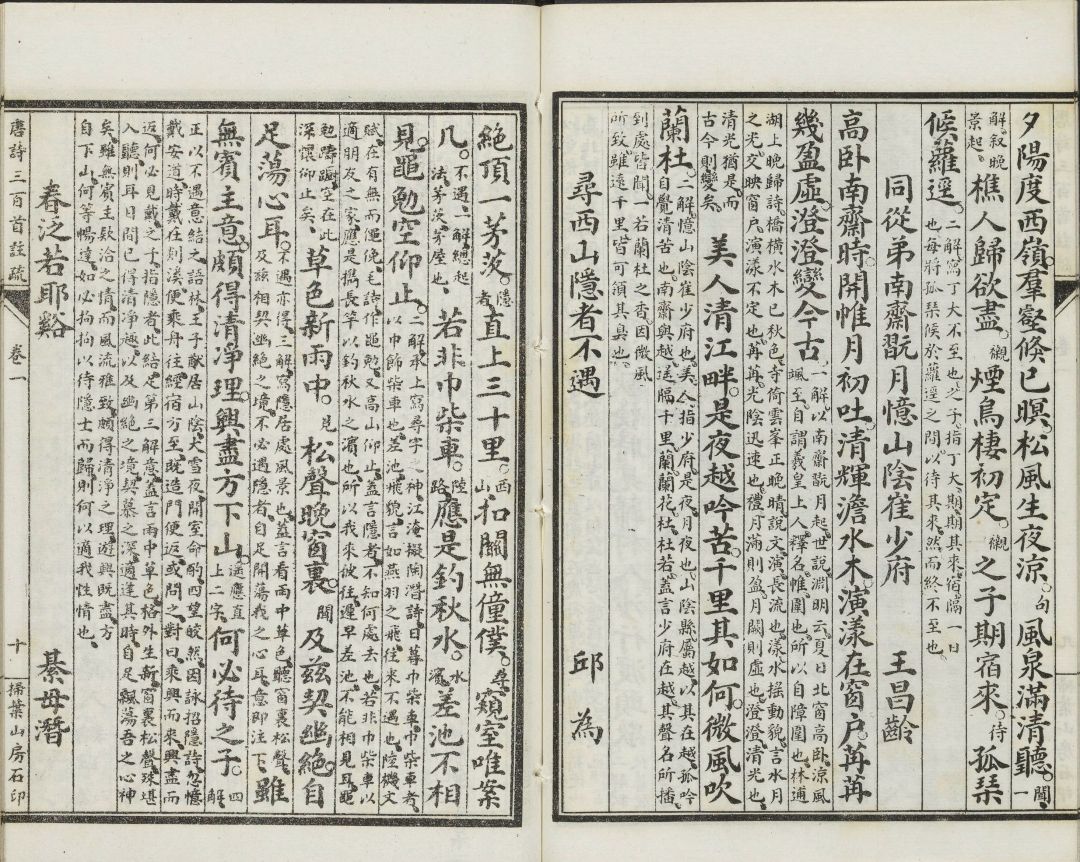 夕陽度西嶺。羣壑倏已暝。松風生夜涼。句 風泉滿清聽。聞、一
解、叙晚景起。樵人歸欲盡。觀 煙鳥棲初定。觀 之子期宿來。待 孤琴
候蘿逕。二解、寫丁大不至也、之子、指丁大、期、期其來、宿、隔一日
也、每將孤琴候於蘿逕之間、以待其來、然而終不至也、
同從弟南齋翫月憶山陰崔少府 王昌齡
高卧南齋時。開帷月初吐。清輝澹水木。演漾在窗戶。苒苒
幾盈虛。澄澄變今古。一解、以南齋翫月起、世說、淵明云、夏日北窗高卧、涼風
颯至、自謂羲皇上人、釋名、帷圍也、所以自障圍也、林逋
湖上晚歸詩、橋橫水木已秋色、寺倚雲峯正晚晴、說文、演長流也、漾水搖動貌、言水月
之光、交映窗戶、演漾不定也、苒苒、光陰迅速也、禮、月滿則盈、月闕則虛也、澄澄、清光也、
清光猶是、而古今則變矣、美人清江畔。是夜越吟苦。千里其如何。微風吹
蘭杜。二解、憶山陰崔少府也、美人、指少府、是夜、月夜也、山陰縣屬越、以其在越、孤吟
自覺清苦也、南齋與越、遙臨千里、蘭、蘭花、杜、杜若、蓋言少府在越、其聲名所播、
到處皆聞、一若蘭杜之香、因微風
所致、雖遠千里、皆可領其臭也、
尋西山隱者不遇 邱為
絕頂一茅茨。隱者 直上三十里。西山 扣關無僮僕。尋 窺室唯案
几。不遇、一解、總起法茅茨、茅屋也、若非巾柴車。陸路 應是釣秋水。水濱 差池不相
見。黽勉空仰止。二解、承上寫尋字之神、江淹擬陶潛詩、日暮巾柴車、巾柴車者、
以巾飾柴車也、差池、飛貌、言如燕羽之飛、往來不遇也、陸機文
賦、在有無而僶俛、毛詩、作黽勉、又高山仰止、蓋言隱者、不知何處去也、若非巾柴車以
適朋友之家、應是攜長竿以釣秋水之濱也、所以我來彼往、遲早差池、不能相見、黽
勉躊躇、空在此深懷仰止矣、草色新雨中。見 松聲晚窗裏。聞 及茲契幽絕。自
足蕩心耳。不遇亦得、三解、寫隱居處風景也、蓋言看雨中草色、聽窗裏松聲、
及茲相契幽絕之境、不必遇隱者、自足開蕩我之心耳、意即注下、雖
無賓主意。頗得清淨理。興盡方下山。遙應直上二字、何必待之子。四解、
正以不遇意結之、語林、王子猷居山陰、大雪夜、開室命酌、四望皎然、因詠招隱詩、忽憶
戴安道、時戴在剡溪、便乘舟往、經宿方至、既造門便返、或問之、對曰、乘興而來、興盡而
返、何必見戴、之子、指隱者、此結足第三解意、蓋言雨中草色、格外生新、窗裏松聲、殊堪
入聽、則耳目間已得清淨趣、以及幽絕之境、契慕之深、適逢其時、自足飄蕩吾之心神
矣、雖無賓主欵洽之情、而風流雅致、頗得清淨之理、遊興既盡、方
自下山、何等暢達、如必拘拘以待隱士而歸、則何以適我性情也、
春泛若耶谿 綦母潛
唐詩三百首註疏 卷一 十 掃葉山房石印